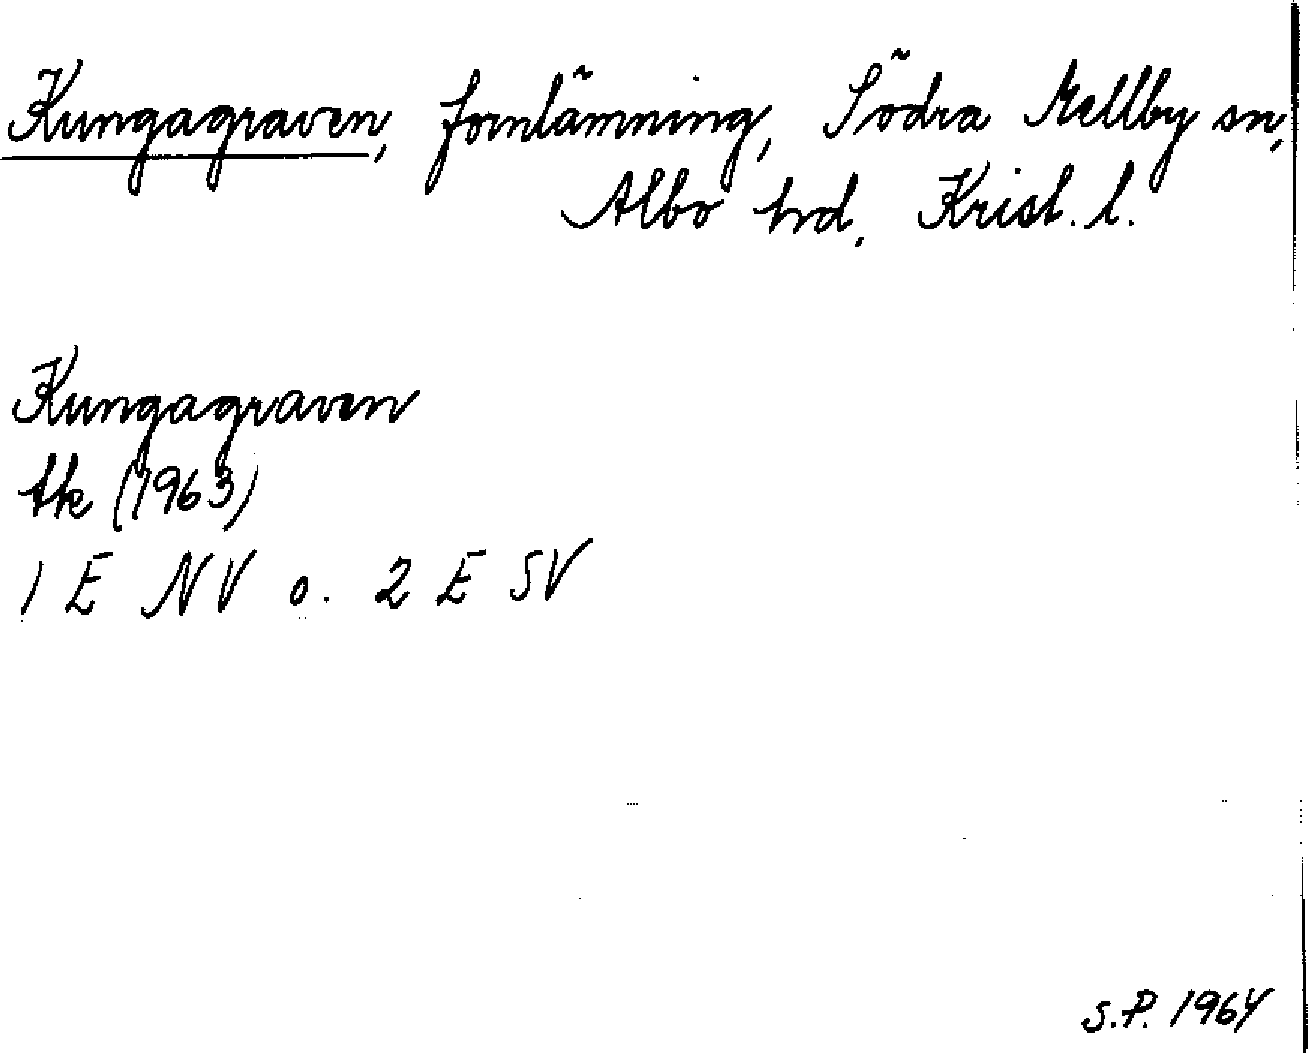 Kungagraven, fornlämning, Södra Mellby sn,
Albo hrd, Krist. l.
Kungagraven
tk (1963)
1 E NV o. 2 E SV
S.P. 1964